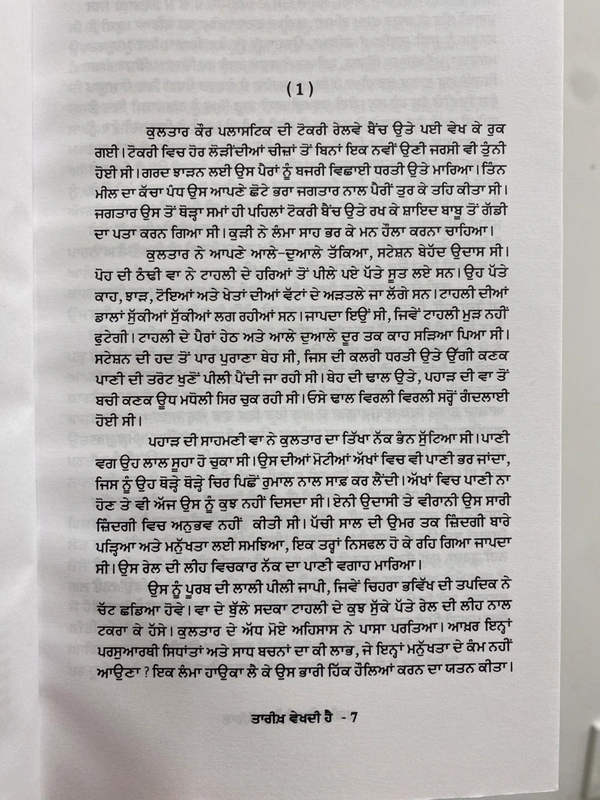 (1)
ਕੁਲਤਾਰ ਕੌਰ ਪਲਾਸਟਿਕ ਦੀ ਟੋਕਰੀ ਰੇਲਵੇ ਬੈਂਚ ਉਤੇ ਪਈ ਵੇਖ ਕੇ ਰੁਕ
ਗਈ। ਟੋਕਰੀ ਵਿਚ ਹੋਰ ਲੋੜੀਂਦੀਆਂ ਚੀਜ਼ਾਂ ਤੋਂ ਬਿਨਾਂ ਇਕ ਨਵੀਂ ਉਣੀ ਜਗਸੀ ਵੀ ਤੁੰਨੀ
ਹੋਈ ਸੀ। ਗਰਦ ਝਾੜਨ ਲਈ ਉਸ ਪੈਰਾਂ ਨੂੰ ਬਜਰੀ ਵਿਛਾਈ ਧਰਤੀ ਉਤੇ ਮਾਰਿਆ। ਤਿੰਨ
ਮੀਲ ਦਾ ਕੱਚਾ ਪੰਧ ਉਸ ਆਪਣੇ ਛੋਟੇ ਭਰਾ ਜਗਤਾਰ ਨਾਲ ਪੈਰੀਂ ਤੁਰ ਕੇ ਤਹਿ ਕੀਤਾ ਸੀ।
ਜਗਤਾਰ ਉਸ ਤੋਂ ਥੋੜ੍ਹਾ ਸਮਾਂ ਹੀ ਪਹਿਲਾਂ ਟੋਕਰੀ ਬੈਂਚ ਉਤੇ ਰਖ ਕੇ ਸ਼ਾਇਦ ਬਾਬੂ ਤੋਂ ਗੱਡੀ
ਦਾ ਪਤਾ ਕਰਨ ਗਿਆ ਸੀ। ਕੁੜੀ ਨੇ ਲੰਮਾ ਸਾਹ ਭਰ ਕੇ ਮਨ ਹੌਲਾ ਕਰਨਾ ਚਾਹਿਆ।
ਕੁਲਤਾਰ ਨੇ ਆਪਣੇ ਆਲੇ-ਦੁਆਲੇ ਤੱਕਿਆ, ਸਟੇਸ਼ਨ ਬੇਹੱਦ ਉਦਾਸ ਸੀ।
ਪੋਹ ਦੀ ਠੰਢੀ ਵਾ ਨੇ ਟਾਹਲੀ ਦੇ ਹਰਿਆਂ ਤੋਂ ਪੀਲੇ ਪਏ ਪੱਤੇ ਸੂਤ ਲਏ ਸਨ। ਉਹ ਪੱਤੇ
ਕਾਹ, ਝਾੜ, ਟੋਇਆਂ ਅਤੇ ਖੇਤਾਂ ਦੀਆਂ ਵੱਟਾਂ ਦੇ ਅੜਤਲੇ ਜਾ ਲੱਗੇ ਸਨ। ਟਾਹਲੀ ਦੀਆਂ
ਡਾਲਾਂ ਸੁੱਕੀਆਂ ਸੁੱਕੀਆਂ ਲਗ ਰਹੀਆਂ ਸਨ। ਜਾਪਦਾ ਇਉਂ ਸੀ, ਜਿਵੇਂ ਟਾਹਲੀ ਮੁੜ ਨਹੀਂ
ਫੁਟੇਗੀ। ਟਾਹਲੀ ਦੇ ਪੈਰਾਂ ਹੇਠ ਅਤੇ ਆਲੇ ਦੁਆਲੇ ਦੂਰ ਤਕ ਕਾਹ ਸੜਿਆ ਪਿਆ ਸੀ।
ਸਟੇਸ਼ਨ ਦੀ ਹਦ ਤੋਂ ਪਾਰ ਪੁਰਾਣਾ ਥੇਹ ਸੀ, ਜਿਸ ਦੀ ਕਲਰੀ ਧਰਤੀ ਉਤੇ ਉੱਗੀ ਕਣਕ
ਪਾਣੀ ਦੀ ਤਰੋਟ ਖੁਣੋਂ ਪੀਲੀ ਪੈਂਦੀ ਜਾ ਰਹੀ ਸੀ। ਥੇਹ ਦੀ ਢਾਲ ਉਤੇ, ਪਹਾੜ ਦੀ ਵਾ ਤੋਂ
ਬਚੀ ਕਣਕ ਊਧ ਮਧੋਲੀ ਸਿਰ ਚੁਕ ਰਹੀ ਸੀ। ਓਸੇ ਢਾਲ ਵਿਰਲੀ ਵਿਰਲੀ ਸਰ੍ਹੋਂ ਗੰਦਲਾਈ
ਹੋਈ ਸੀ।
ਪਹਾੜ ਦੀ ਸਾਹਮਣੀ ਵਾ ਨੇ ਕੁਲਤਾਰ ਦਾ ਤਿੱਖਾ ਨੱਕ ਭੰਨ ਸੁੱਟਿਆ ਸੀ। ਪਾਣੀ
ਵਗ ਉਹ ਲਾਲ ਸੂਹਾ ਹੋ ਚੁਕਾ ਸੀ। ਉਸ ਦੀਆਂ ਮੋਟੀਆਂ ਅੱਖਾਂ ਵਿਚ ਵੀ ਪਾਣੀ ਭਰ ਜਾਂਦਾ,
ਜਿਸ ਨੂੰ ਉਹ ਥੋੜ੍ਹੇ ਥੋੜ੍ਹੇ ਚਿਰ ਪਿਛੋਂ ਰੁਮਾਲ ਨਾਲ ਸਾਫ਼ ਕਰ ਲੈਂਦੀ। ਅੱਖਾਂ ਵਿਚ ਪਾਣੀ ਨਾ
ਹੋਣ ਤੇ ਵੀ ਅੱਜ ਉਸ ਨੂੰ ਕੁਝ ਨਹੀਂ ਦਿਸਦਾ ਸੀ। ਏਨੀ ਉਦਾਸੀ ਤੇ ਵੀਰਾਨੀ ਉਸ ਸਾਰੀ
ਜ਼ਿੰਦਗੀ ਵਿਚ ਅਨੁਭਵ ਨਹੀਂ ਕੀਤੀ ਸੀ। ਪੱਚੀ ਸਾਲ ਦੀ ਉਮਰ ਤਕ ਜ਼ਿੰਦਗੀ ਬਾਰੇ
ਪੜ੍ਹਿਆ ਅਤੇ ਮਨੁੱਖਤਾ ਲਈ ਸਮਝਿਆ, ਇਕ ਤਰ੍ਹਾਂ ਨਿਸਫਲ ਹੋ ਕੇ ਰਹਿ ਗਿਆ ਜਾਪਦਾ
ਸੀ। ਉਸ ਰੇਲ ਦੀ ਲੀਹ ਵਿਚਕਾਰ ਨੱਕ ਦਾ ਪਾਣੀ ਵਗਾਹ ਮਾਰਿਆ।
ਉਸ ਨੂੰ ਪੂਰਬ ਦੀ ਲਾਲੀ ਪੀਲੀ ਜਾਪੀ, ਜਿਵੇਂ ਚਿਹਰਾ ਭਵਿੱਖ ਦੀ ਤਪਦਿਕ ਨੇ
ਚੱਟ ਛਡਿਆ ਹੋਵੇ। ਵਾ ਦੇ ਬੁੱਲੇ ਸਦਕਾ ਟਾਹਲੀ ਦੇ ਕੁਝ ਸੁੱਕੇ ਪੱਤੇ ਰੇਲ ਦੀ ਲੀਹ ਨਾਲ
ਟਕਰਾ ਕੇ ਹੱਸੇ। ਕੁਲਤਾਰ ਦੇ ਅੱਧ ਮੋਏ ਅਹਿਸਾਸ ਨੇ ਪਾਸਾ ਪਰਤਿਆ। ਆਖ਼ਰ ਇਨ੍ਹਾਂ
ਪਰਸੁਆਰਥੀ ਸਿਧਾਂਤਾਂ ਅਤੇ ਸਾਧ ਬਚਨਾਂ ਦਾ ਕੀ ਲਾਭ, ਜੇ ਇਨ੍ਹਾਂ ਮਨੁੱਖਤਾ ਦੇ ਕੰਮ ਨਹੀਂ
ਆਉਣਾ ? ਇਕ ਲੰਮਾ ਹਾਉਕਾ ਲੈ ਕੇ ਉਸ ਭਾਰੀ ਹਿੱਕ ਹੌਲਿਆਂ ਕਰਨ ਦਾ ਯਤਨ ਕੀਤਾ।
ਤਾਰੀਖ਼ ਵੇਖਦੀ ਹੈ - 7